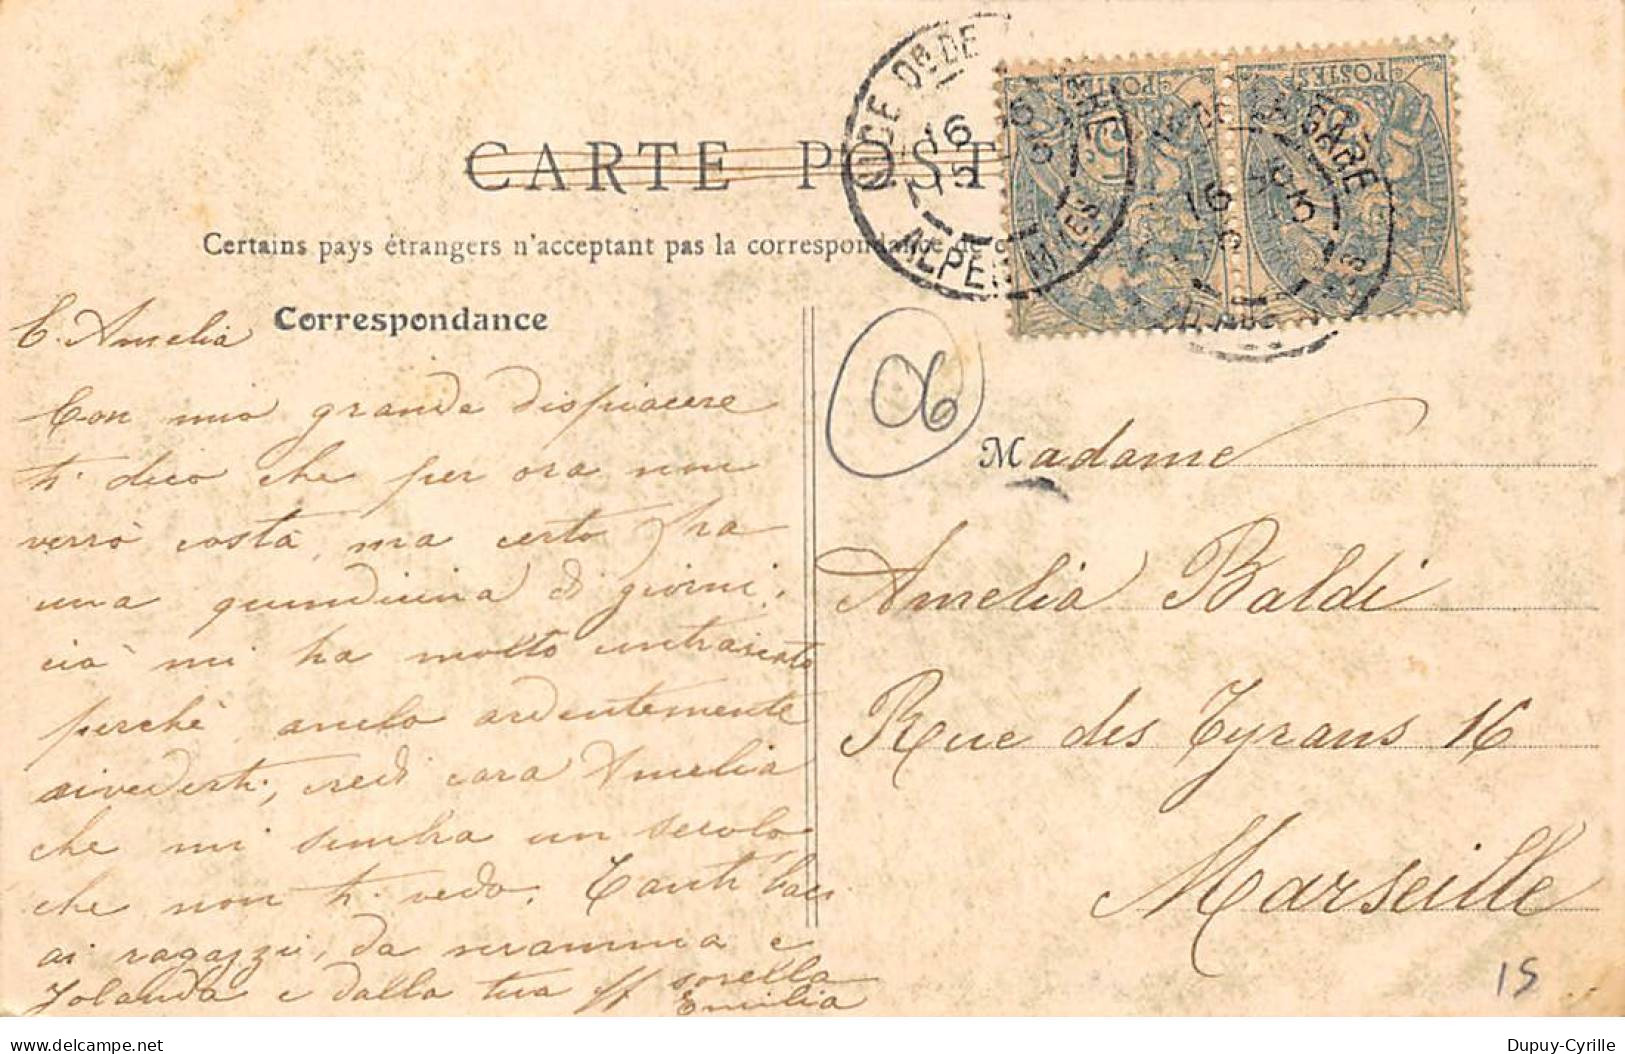 CARTE POST
Certains pays étrangers n'acceptant pas la correspondance de c
Correspondance
C. Amelia
Con mio grande dispiacere
ti dico che per ora non
verrò costà, ma certo fra
una quindicina di giorni,
ciò mi ha molto
perchè anelo ardentemente
rivederti, credi cara Amelia
che mi sembra un secolo
che non ti vedo. Tanti baci
ai ragazzi, da mamma e
Jolanda e dalla tua aff sorella
Emilia
06
Madame
Amelia Baldi
Rue des Tyrans 16
Marseille
15
POSTES
POSTES
NICE Pce DE
16
15
ALPES MMES
GARE
16
delcampe.net
Dupuy-Cyrille